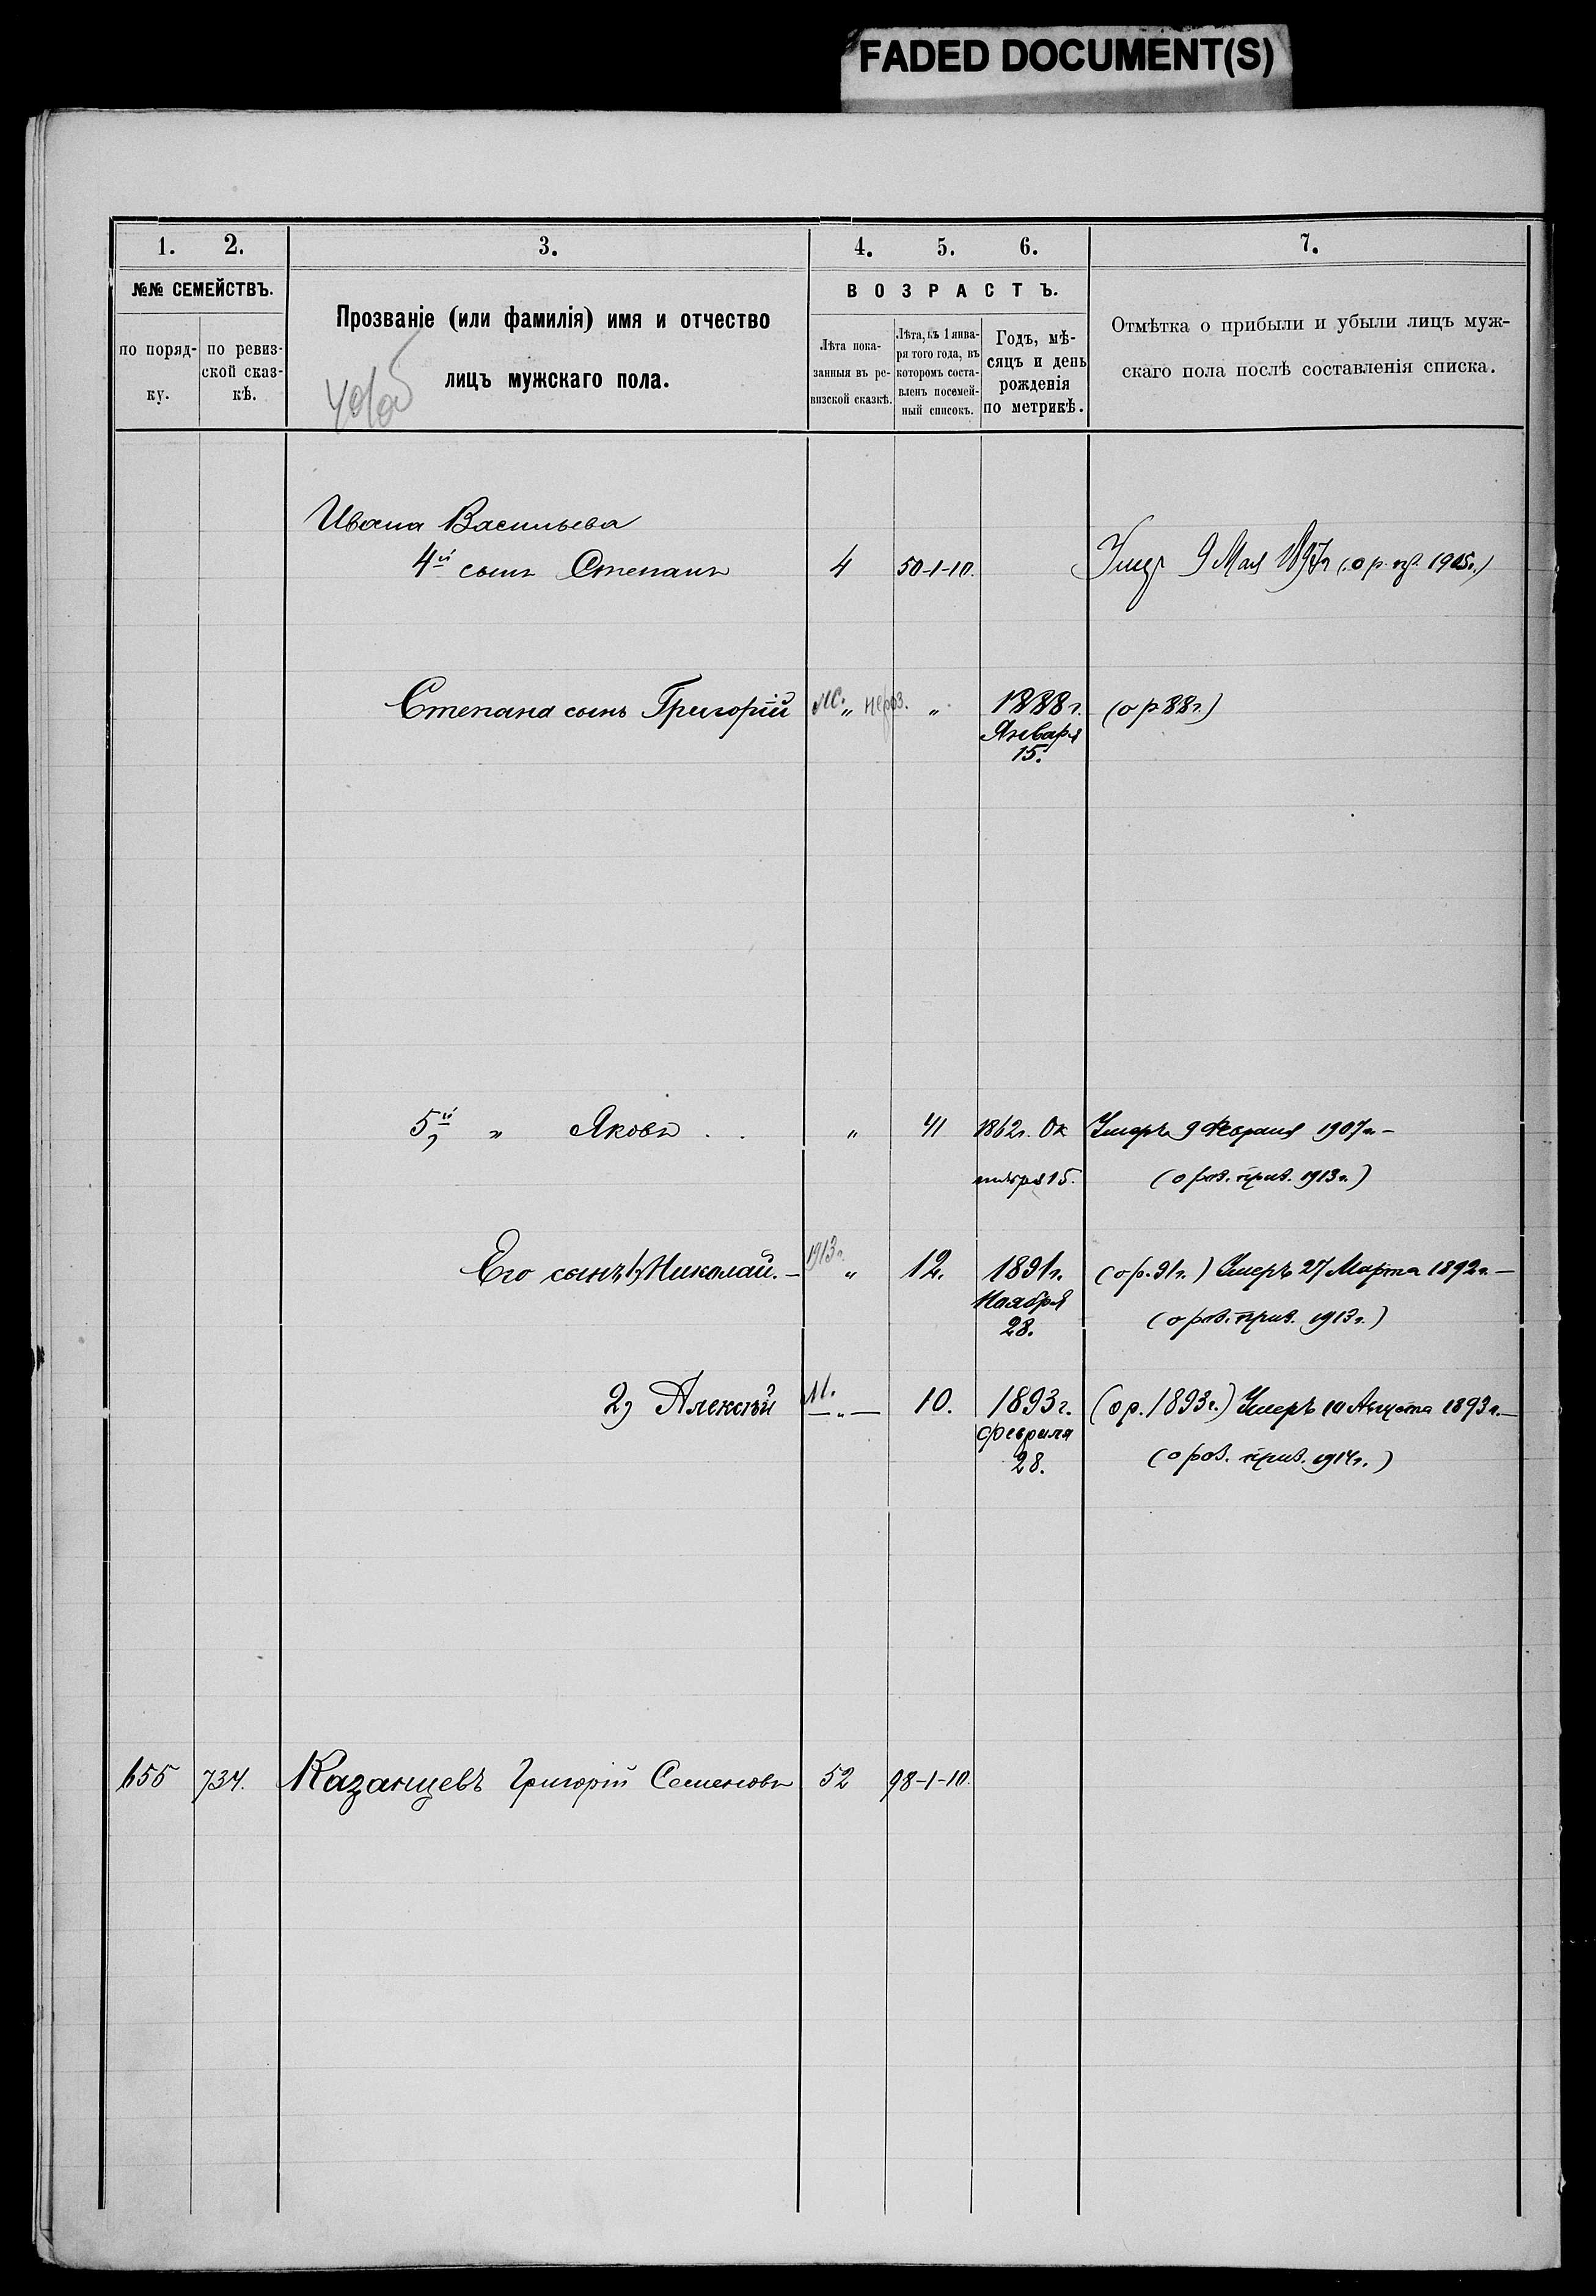 FADED DOCUMENT(S)
1. 2. 3. 4. 5. 6. 7.
№№ СЕМЕЙСТВЪ.
по поряд-
ку.
по ревиз-
ской сказ-
кѣ.
Прозваніе (или фамилія) имя и отчество
лицъ мужскаго пола.
ВОЗРАСТЪ.
Лѣта пока-
занныя въ ре-
визской сказкѣ.
Лѣта, къ 1 янва-
ря того года, въ
которомъ соста-
вленъ посемей-
ный списокъ.
Годъ, мѣ-
сяцъ и день
рожденія
по метрикѣ.
Отмѣтка о прибыли и убыли лицъ муж-
скаго пола послѣ составленія списка.
Ивана Васильева
4й сынъ Степанъ 4 50-1-10. 9 Мая 1897г (о р. 1905г.)
Степана сынъ Григорій „ „ 1888г. (о р 88г.)
Января
15.
5й „ Яковъ . . „ 41 1862г. Ок Умеръ 9 Февраля 1907г. –
тября 15. (о рев. прив. 1913г.)
Его сынъ 1, Николай. – 1913г. „ 12. 1891г. (о р. 91г.) Умеръ 27 Марта 1892г. –
Ноября (о рев. прив. 1913г.)
28.
2, Алексѣй — „ — 10. 1893г. (о р. 1893г.) Умеръ 10 Августа 1893г. –
февраля (о рев. прив. 1914г.)
28.
655 734. Казанцевъ Григорій Семеновъ 52 98-1-10.